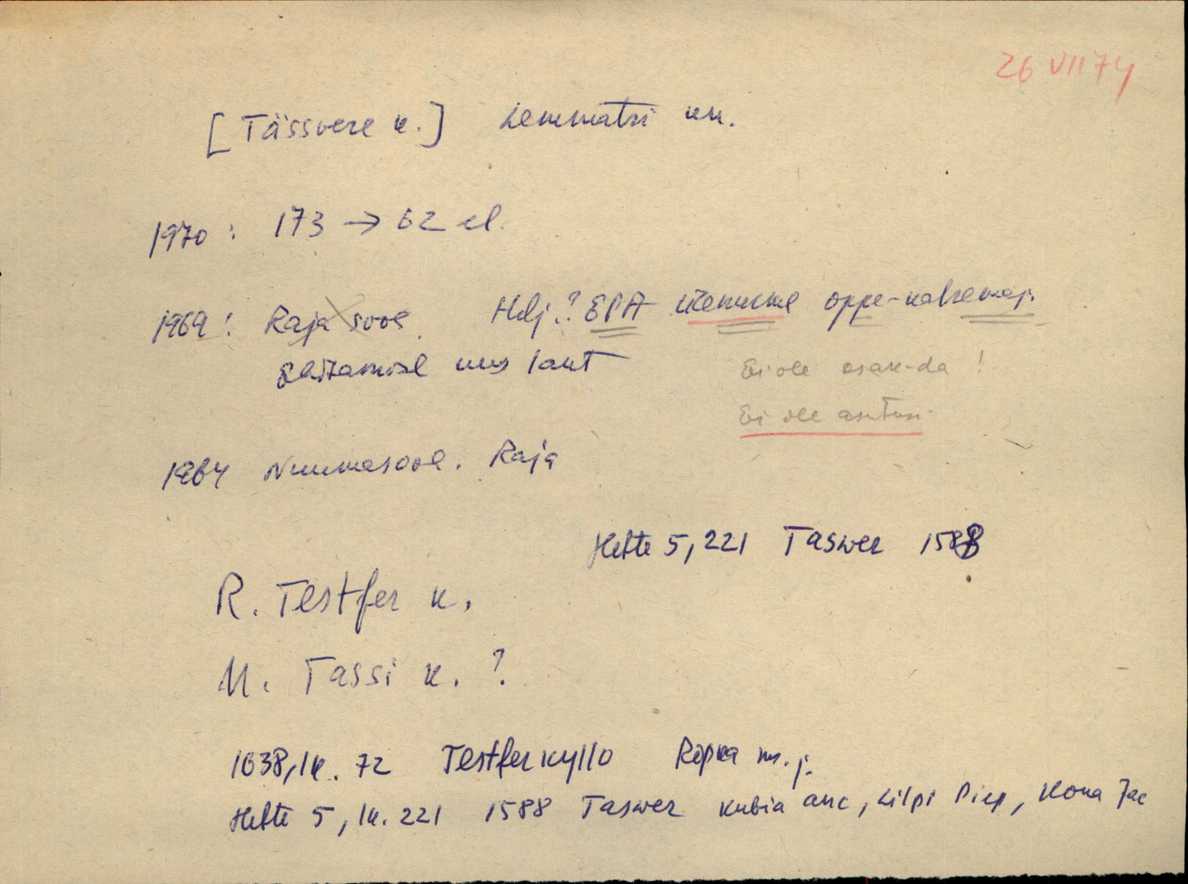 26 VII 74
[Tässvere k.] Lemmatsi kn.
1970: 173 → 62 el.
1969: Raja soov. Hdj.? EPA Ülenurme õppe-katsemaj.
säilitamisel uus laut
Ei ole osak-da!
Ei ole asutusi
1964 Nurmesoov. Raja
Hefte 5, 221 Taswer 1588
R. Testfer k.
M. Tassi k. ?
1638, lk. 72 Testferkyllo Ropka m. j.
Hefte 5, lk. 221 1588 Taswer Kubia anc, Lilpi Piep, Kona Jac